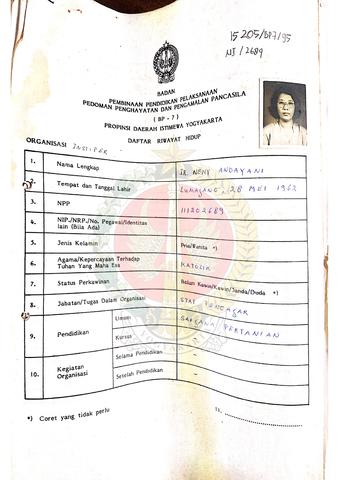 15205/BP7/95
NI/2689
BADAN
PEMBINAAN PENDIDIKAN PELAKSANAAN
PEDOMAN PENGHAYATAN DAN PENGAMALAN PANCASILA
( BP - 7 )
PROPINSI DAERAH ISTIMEWA YOGYAKARTA
DAFTAR RIWAYAT HIDUP
ORGANISASI INSTIPER
1. Nama Lengkap IR. NENY ANDAYANI
2. Tempat dan Tanggal Lahir LUMAJANG, 28 MEI 1962
3. NPP 111202689
4. NIP./NRP./No. Pegawai/Identitas
lain (Bila Ada) -
5. Jenis Kelamin Pria/Wanita *)
6. Agama/Kepercayaan Terhadap
Tuhan Yang Maha Esa KATOLIK
7. Status Perkawinan Belum Kawin/Kawin/Janda/Duda *)
8. Jabatan/Tugas Dalam Organisasi STAF PENGAJAR
9. Pendidikan Umum SARJANA PERTANIAN
Kursus -
10. Kegiatan
Organisasi Selama Pendidikan -
Setelah Pendidikan -
*) Coret yang tidak perlu